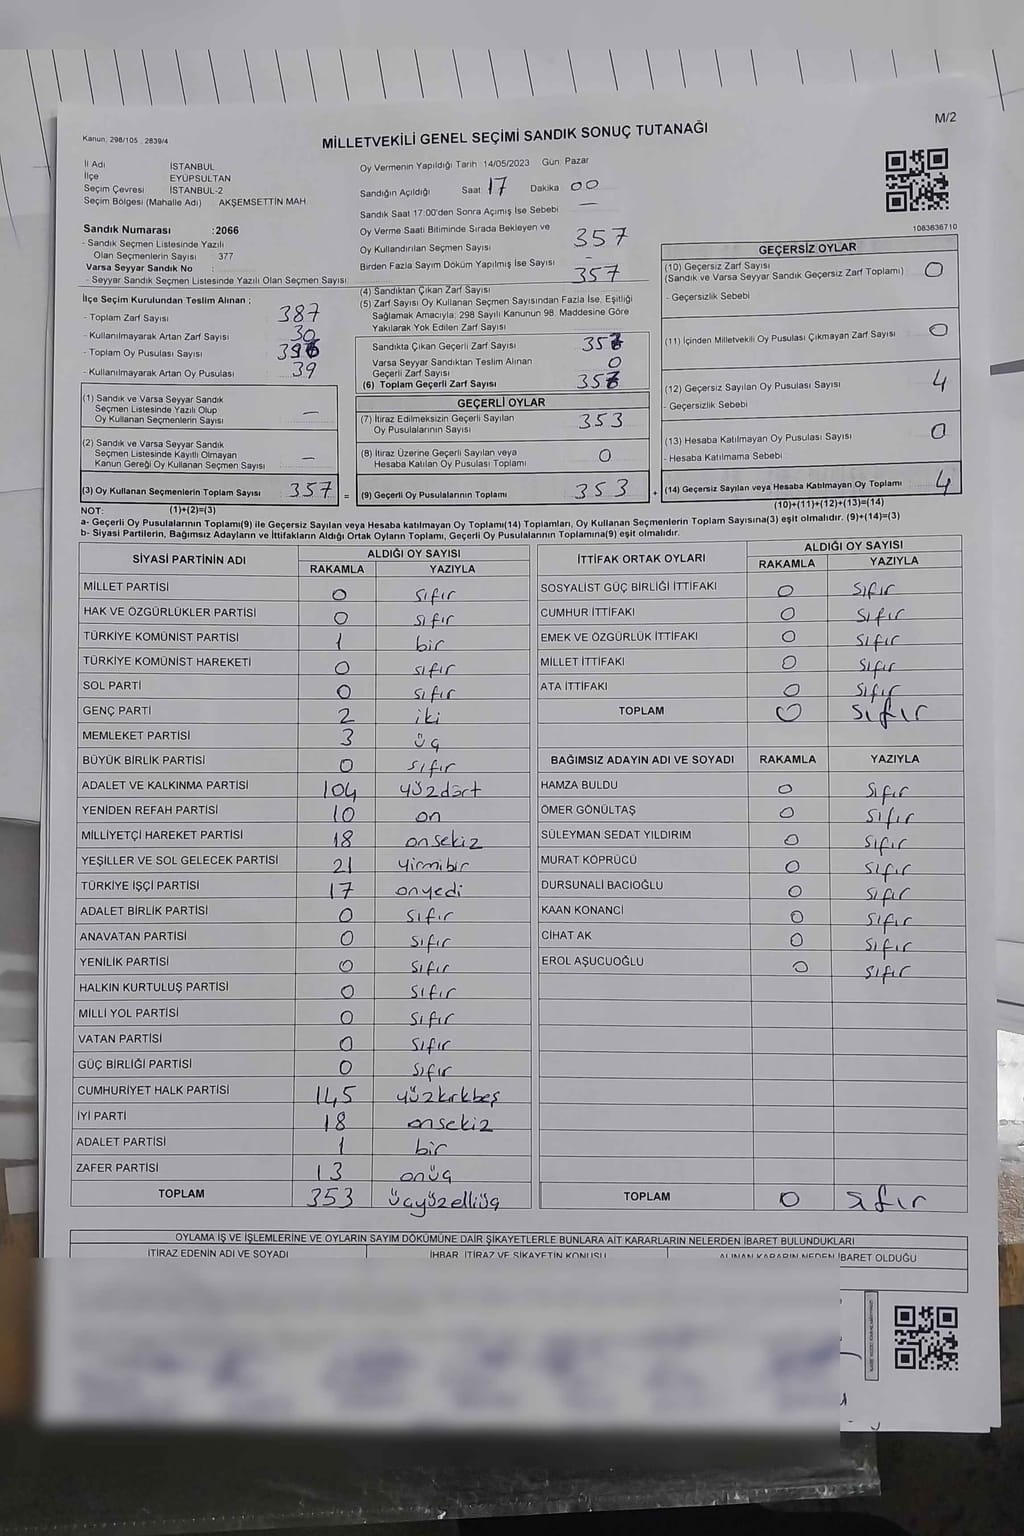 M/2
Kanun. 298/105 , 2839/4
MİLLETVEKİLİ GENEL SEÇİMİ SANDIK SONUÇ TUTANAĞI
İl Adı İSTANBUL
İlçe EYÜPSULTAN
Seçim Çevresi İSTANBUL-2
Seçim Bölgesi (Mahalle Adı) AKŞEMSETTİN MAH.
Sandık Numarası :2066
- Sandık Seçmen Listesinde Yazılı
Olan Seçmenlerin Sayısı 377
Varsa Seyyar Sandık No :
- Seyyar Sandık Seçmen Listesinde Yazılı Olan Seçmen Sayısı
Oy Vermenin Yapıldığı Tarih 14/05/2023 Gün Pazar
Sandığın Açıldığı Saat 17 Dakika 00
Sandık Saat 17:00'den Sonra Açımış İse Sebebi —
Oy Verme Saati Bitiminde Sırada Bekleyen ve
Oy Kullandırılan Seçmen Sayısı 357
Birden Fazla Sayım Döküm Yapılmış İse Sayısı -
1083636710
İlçe Seçim Kurulundan Teslim Alınan ;
- Toplam Zarf Sayısı 387
- Kullanılmayarak Artan Zarf Sayısı 30
- Toplam Oy Pusulası Sayısı
- Kullanılmayarak Artan Oy Pusulası 39
(1) Sandık ve Varsa Seyyar Sandık
Seçmen Listesinde Yazılı Olup
Oy Kullanan Seçmenlerin Sayısı —
(2) Sandık ve Varsa Seyyar Sandık
Seçmen Listesinde Kayıtlı Olmayan
Kanun Gereği Oy Kullanan Seçmen Sayısı —
(3) Oy Kullanan Seçmenlerin Toplam Sayısı 357 =
(4) Sandıktan Çıkan Zarf Sayısı 357
(5) Zarf Sayısı Oy Kullanan Seçmen Sayısından Fazla İse, Eşitliği
Sağlamak Amacıyla; 298 Sayılı Kanunun 98. Maddesine Göre
Yakılarak Yok Edilen Zarf Sayısı
Sandıkta Çıkan Geçerli Zarf Sayısı 357
Varsa Seyyar Sandıktan Teslim Alınan
Geçerli Zarf Sayısı 0
(6) Toplam Geçerli Zarf Sayısı 357
GEÇERLİ OYLAR
(7) İtiraz Edilmeksizin Geçerli Sayılan
Oy Pusulalarının Sayısı 353
(8) İtiraz Üzerine Geçerli Sayılan veya
Hesaba Katılan Oy Pusulası Toplamı 0
(9) Geçerli Oy Pusulalarının Toplamı 353 +
GEÇERSİZ OYLAR
(10) Geçersiz Zarf Sayısı
(Sandık ve Varsa Seyyar Sandık Geçersiz Zarf Toplamı) 0
- Geçersizlik Sebebi
(11) İçinden Milletvekili Oy Pusulası Çıkmayan Zarf Sayısı 0
(12) Geçersiz Sayılan Oy Pusulası Sayısı 4
- Geçersizlik Sebebi
(13) Hesaba Katılmayan Oy Pusulası Sayısı 0
- Hesaba Katılmama Sebebi
(14) Geçersiz Sayılan veya Hesaba Katılmayan Oy Toplamı 4
NOT: (1)+(2)=(3) (10)+(11)+(12)+(13)=(14)
a- Geçerli Oy Pusulalarının Toplamı(9) ile Geçersiz Sayılan veya Hesaba katılmayan Oy Toplamı(14) Toplamları, Oy Kullanan Seçmenlerin Toplam Sayısına(3) eşit olmalıdır. (9)+(14)=(3)
b- Siyasi Partilerin, Bağımsız Adayların ve İttifakların Aldığı Ortak Oyların Toplamı, Geçerli Oy Pusulalarının Toplamına(9) eşit olmalıdır.
SİYASİ PARTİNİN ADI ALDIĞI OY SAYISI
RAKAMLA YAZIYLA
MİLLET PARTİSİ 0 sıfır
HAK VE ÖZGÜRLÜKLER PARTİSİ 0 sıfır
TÜRKİYE KOMÜNİST PARTİSİ 1 bir
TÜRKİYE KOMÜNİST HAREKETİ 0 sıfır
SOL PARTİ 0 sıfır
GENÇ PARTİ 2 iki
MEMLEKET PARTİSİ 3 üç
BÜYÜK BİRLİK PARTİSİ 0 sıfır
ADALET VE KALKINMA PARTİSİ 104 yüzdört
YENİDEN REFAH PARTİSİ 10 on
MİLLİYETÇİ HAREKET PARTİSİ 18 onsekiz
YEŞİLLER VE SOL GELECEK PARTİSİ 21 yirmibir
TÜRKİYE İŞÇİ PARTİSİ 17 onyedi
ADALET BİRLİK PARTİSİ 0 sıfır
ANAVATAN PARTİSİ 0 sıfır
YENİLİK PARTİSİ 0 sıfır
HALKIN KURTULUŞ PARTİSİ 0 sıfır
MİLLİ YOL PARTİSİ 0 sıfır
VATAN PARTİSİ 0 sıfır
GÜÇ BİRLİĞİ PARTİSİ 0 sıfır
CUMHURİYET HALK PARTİSİ 145 yüzkırkbeş
İYİ PARTİ 18 onsekiz
ADALET PARTİSİ 1 bir
ZAFER PARTİSİ 13 onüç
TOPLAM 353 üçyüzelliüç
İTTİFAK ORTAK OYLARI ALDIĞI OY SAYISI
RAKAMLA YAZIYLA
SOSYALİST GÜÇ BİRLİĞİ İTTİFAKI 0 sıfır
CUMHUR İTTİFAKI 0 sıfır
EMEK VE ÖZGÜRLÜK İTTİFAKI 0 sıfır
MİLLET İTTİFAKI 0 sıfır
ATA İTTİFAKI 0 sıfır
TOPLAM 0 sıfır
BAĞIMSIZ ADAYIN ADI VE SOYADI RAKAMLA YAZIYLA
HAMZA BULDU 0 sıfır
ÖMER GÖNÜLTAŞ 0 sıfır
SÜLEYMAN SEDAT YILDIRIM 0 sıfır
MURAT KÖPRÜCÜ 0 sıfır
DURSUNALİ BACIOĞLU 0 sıfır
KAAN KONANCİ 0 sıfır
CİHAT AK 0 sıfır
EROL AŞUCUOĞLU 0 sıfır
TOPLAM 0 sıfır
OYLAMA İŞ VE İŞLEMLERİNE VE OYLARIN SAYIM DÖKÜMÜNE DAİR ŞİKAYETLERLE BUNLARA AİT KARARLARIN NELERDEN İBARET BULUNDUKLARI
İTİRAZ EDENİN ADI VE SOYADI İHBAR, İTİRAZ VE ŞİKAYETİN KONUSU ALINAN KARARIN NEDEN İBARET OLDUĞU